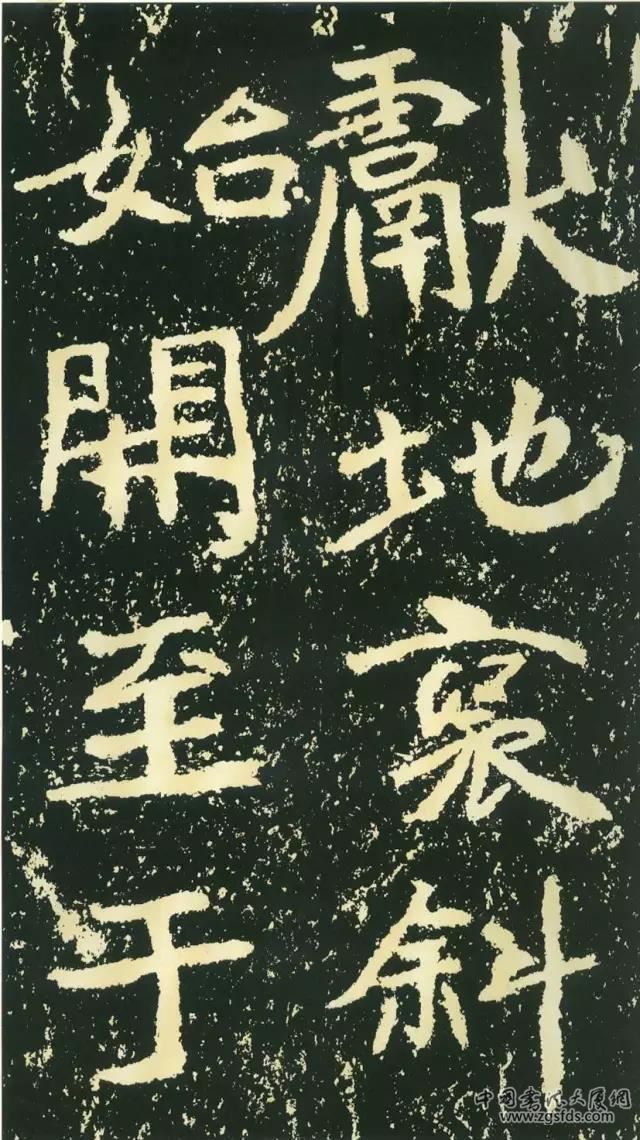 獻地褒斜
始開至于
中国书法大厦网
www.zgsfds.com